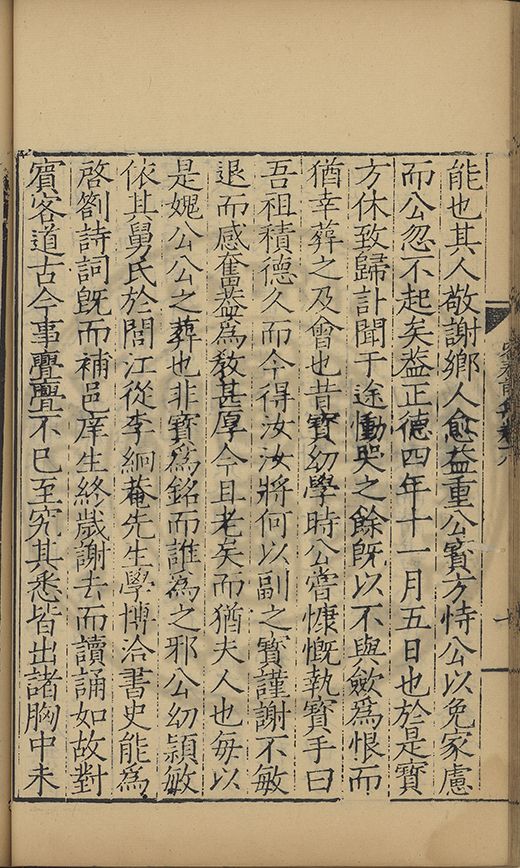 能也其人敬謝鄉人愈益重公寳方恃公以免家慮
而公忽不起矣葢正德四年十一月五日也於是寳
方休致歸訃聞于途慟哭之餘旣以不與歛為恨而
猶幸葬之及會也昔寳幼學時公嘗慷慨執寳手曰
吾祖積德久而今得汝汝將何以副之寳謹謝不敏
退而感奮葢為敎甚厚今且老矣而猶夫人也每以
是媿公公之葬也非寳為銘而誰為之邪公幼穎敏
依其舅氏於閭江從李絅菴先生學博洽書史能為
啓劄詩詞旣而補邑庠生終歲謝去而讀誦如故對
賔客道古今事亹亹不已至究其悉皆出諸胸中未